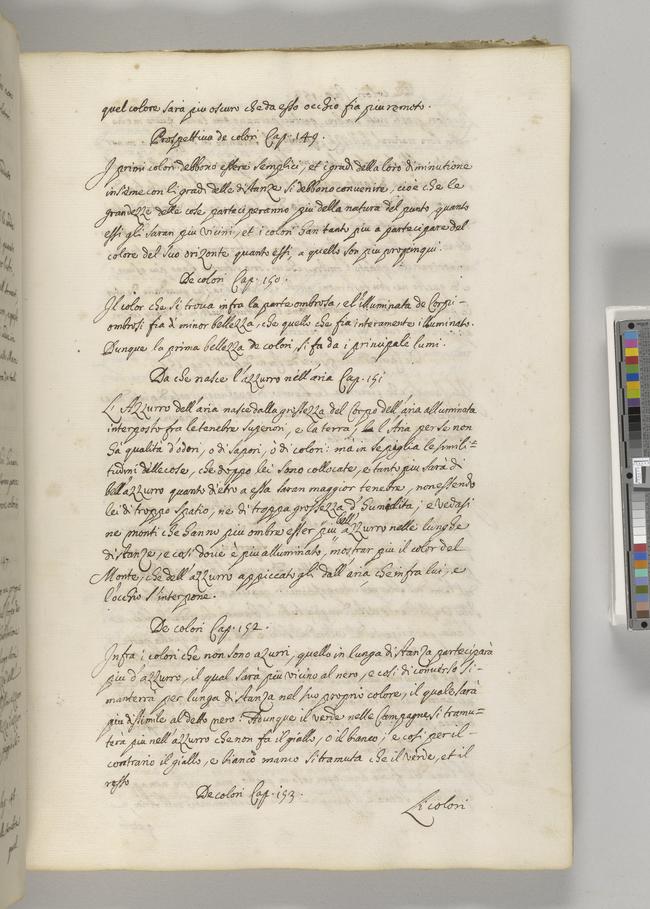 quel colore sarà piu oscuro che da esso occhio fia piu remoto.
Prospettiva de colori Cap. 149.
I primi colori debbono essere semplici, et i gradi della loro diminutione
insieme con li gradi delle distanze si debbono convenire, cioè che le
grandezze delle cose parteciperanno più della natura del punto, quanto
essi gli saran piu vicini, et i colori han tanto piu a partecipare del
colore del suo orizonte quanto essi, a quello son piu propinqui.
De colori Cap. 150.
Il color che si trova infra la parte ombrosa, e l'illuminata de Corpi-
ombrosi fia di minor bellezza, che quello che fia interamente illuminato.
Dunque la prima bellezza de colori, si fa da i principale lumi.
Da che nasce l'azzurro nell'aria Cap. 151
L'Azzurro dell'aria nasce dalla grossezza del Corpo dell'aria alluminata
interposto fra le tenebre superiori, e la terra, l'Aria per se non
hà qualità d'odori, o di sapori, ò di colori: mà in se piglia le simili=
tudini delle cose, che doppo lei sono collocate, e tanto piu sarà di
bell'azzurro quanto dietro a essa saran maggior tenebre, non essendo
lei di troppo spatio, ne di troppa grossezza d'humidità; e vedasi
ne monti che hanno più ombre esser più bell'azzurro nelle lunghe
distanze, e così dove è più alluminato, mostrar più il color del
Monte, che dell'azzurro appiccatogli dall'aria che infra lui, e
l'occhio s'interpone.
De colori Cap. 152.
Infra i colori che non sono azurri, quello in lunga distanza parteciparà
piu d'azzurro, il qual sarà più vicino al nero, e così di converso si-
manterrà per lunga distanza nel suo proprio colore, il quale sarà
più dissimile al detto nero: Adunque il verde nelle Campagne si tramu=
terà più nell'azzurro che non fà il giallo, o il bianco; e così per il-
contrario il giallo, e bianco manco si tramuta che il verde, et il
rosso
De colori Cap. 153.
Li colori